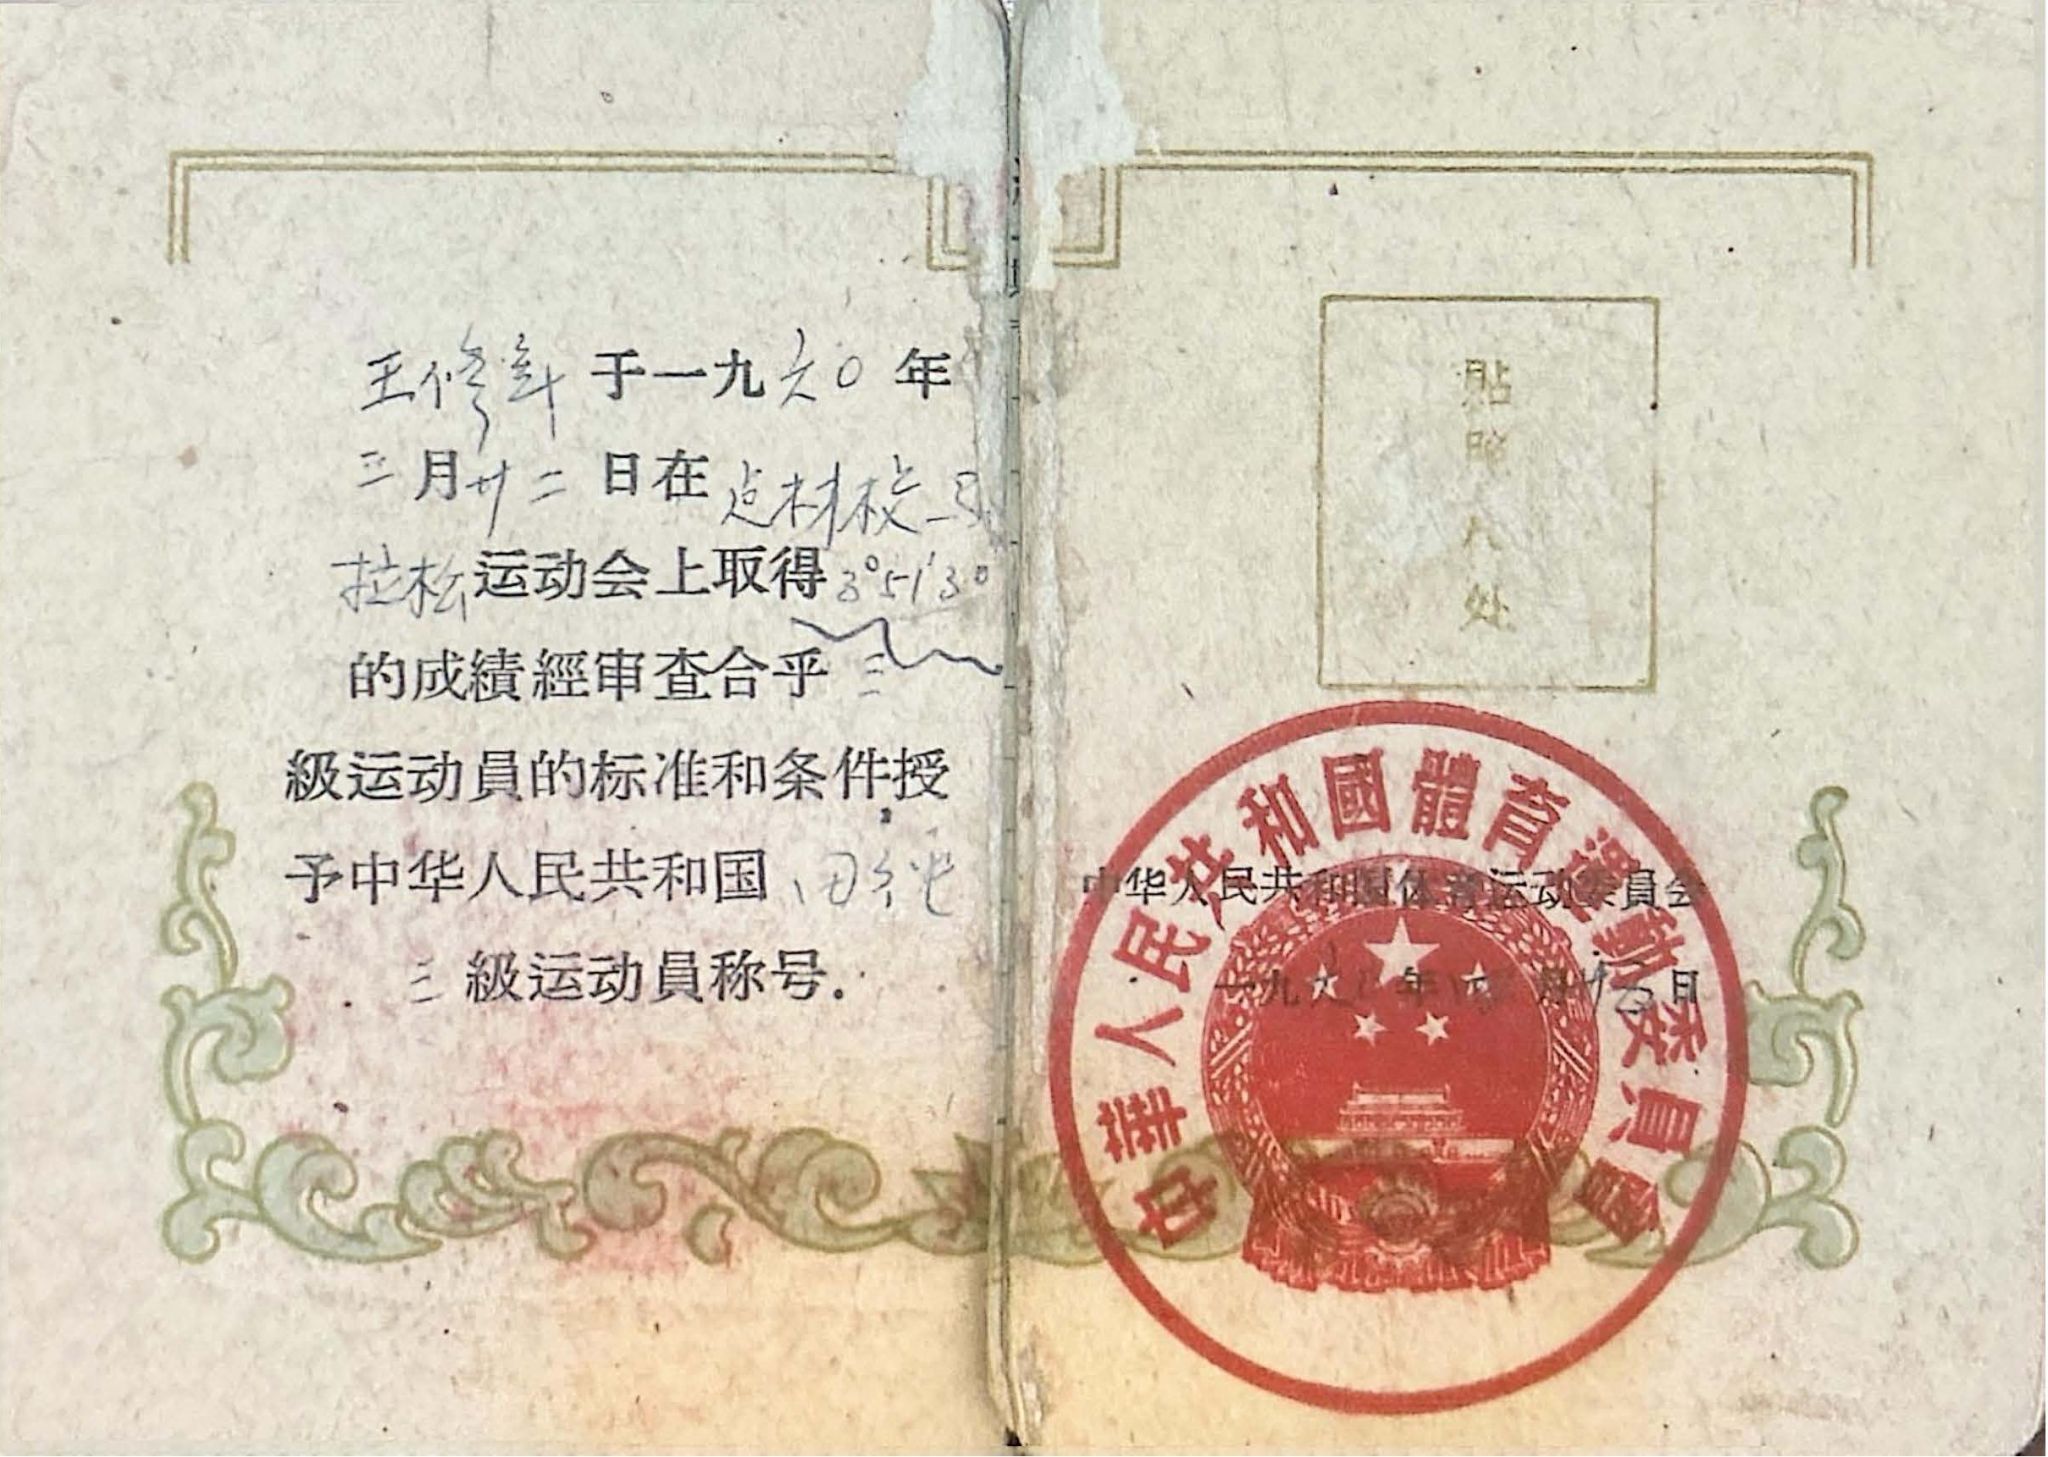 王修 于一九六〇年
三月廿二日在 林校 马
拉松运动会上取得3°51′30
的成績經审查合乎三
級运动員的标准和条件,授
予中华人民共和国 田径
三級运动員称号.
貼照片处
中华人民共和国体育运动委員会
一九六 年 月廿 日
中華人民共和國體育運動委員會